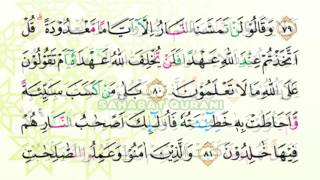 ٧٩ وَقَالُوا لَنْ تَمَسَّنَا النَّارُ إِلَّا أَيَّامًا مَعْدُودَةً ۗ قُلْ
أَتَّخَذْتُمْ عِنْدَ اللَّهِ عَهْدًا فَلَنْ يُخْلِفَ اللَّهُ عَهْدَهُ ۖ أَمْ تَقُولُونَ
عَلَى اللَّهِ مَا لَا تَعْلَمُونَ ٨٠ بَلَىٰ مَنْ كَسَبَ سَيِّئَةً
SAHABAT QURANI
وَأَحَاطَتْ بِهِ خَطِيئَتُهُ فَأُولَٰئِكَ أَصْحَابُ النَّارِ ۖ هُمْ
فِيهَا خَالِدُونَ ٨١ وَالَّذِينَ آمَنُوا وَعَمِلُوا الصَّالِحَاتِ